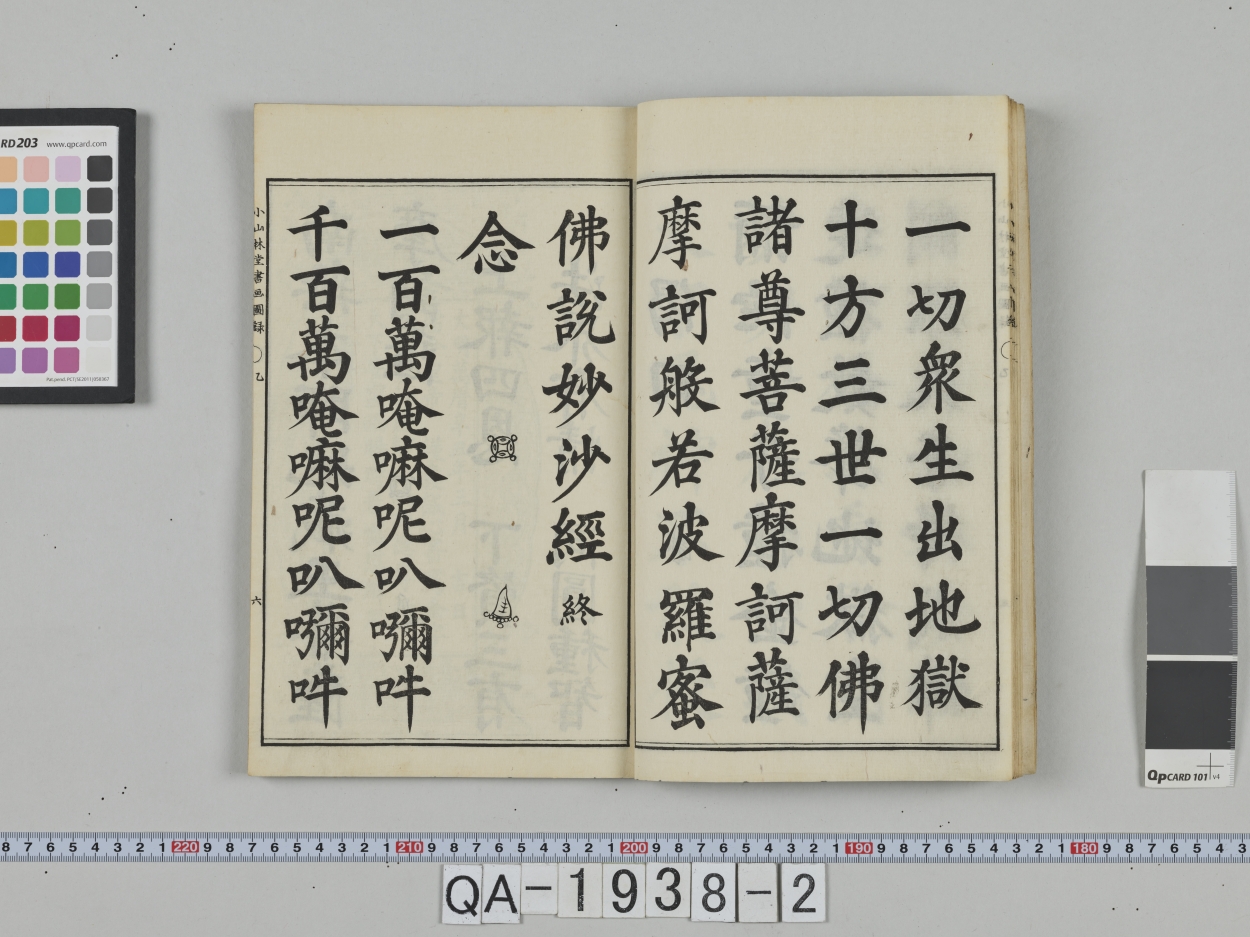 一切衆生出地獄
十方三世一切佛
諸尊菩薩摩訶薩
摩訶般若波羅蜜
佛說妙沙經終
念
一百萬唵嘛呢叭嚩吽
千百萬唵嘛呢叭嚩吽
小山林堂書画圖録 〇 乙
六
RD203 www.qpcard.com
QPCARD 101 v4
8 7 6 5 4 3 2 1 220 9 8 7 6 5 4 3 2 1 210 9 8 7 6 5 4 3 2 1 200 9 8 7 6 5 4 3 2 1 190 9 8 7 6 5 4 3 2 1 180 9 8 7 6 5 4 3
QA-1938-2